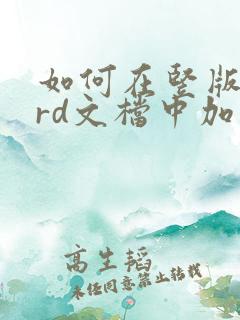 如何在竖版
rd文档中加
高生韬
未经同意禁止转载